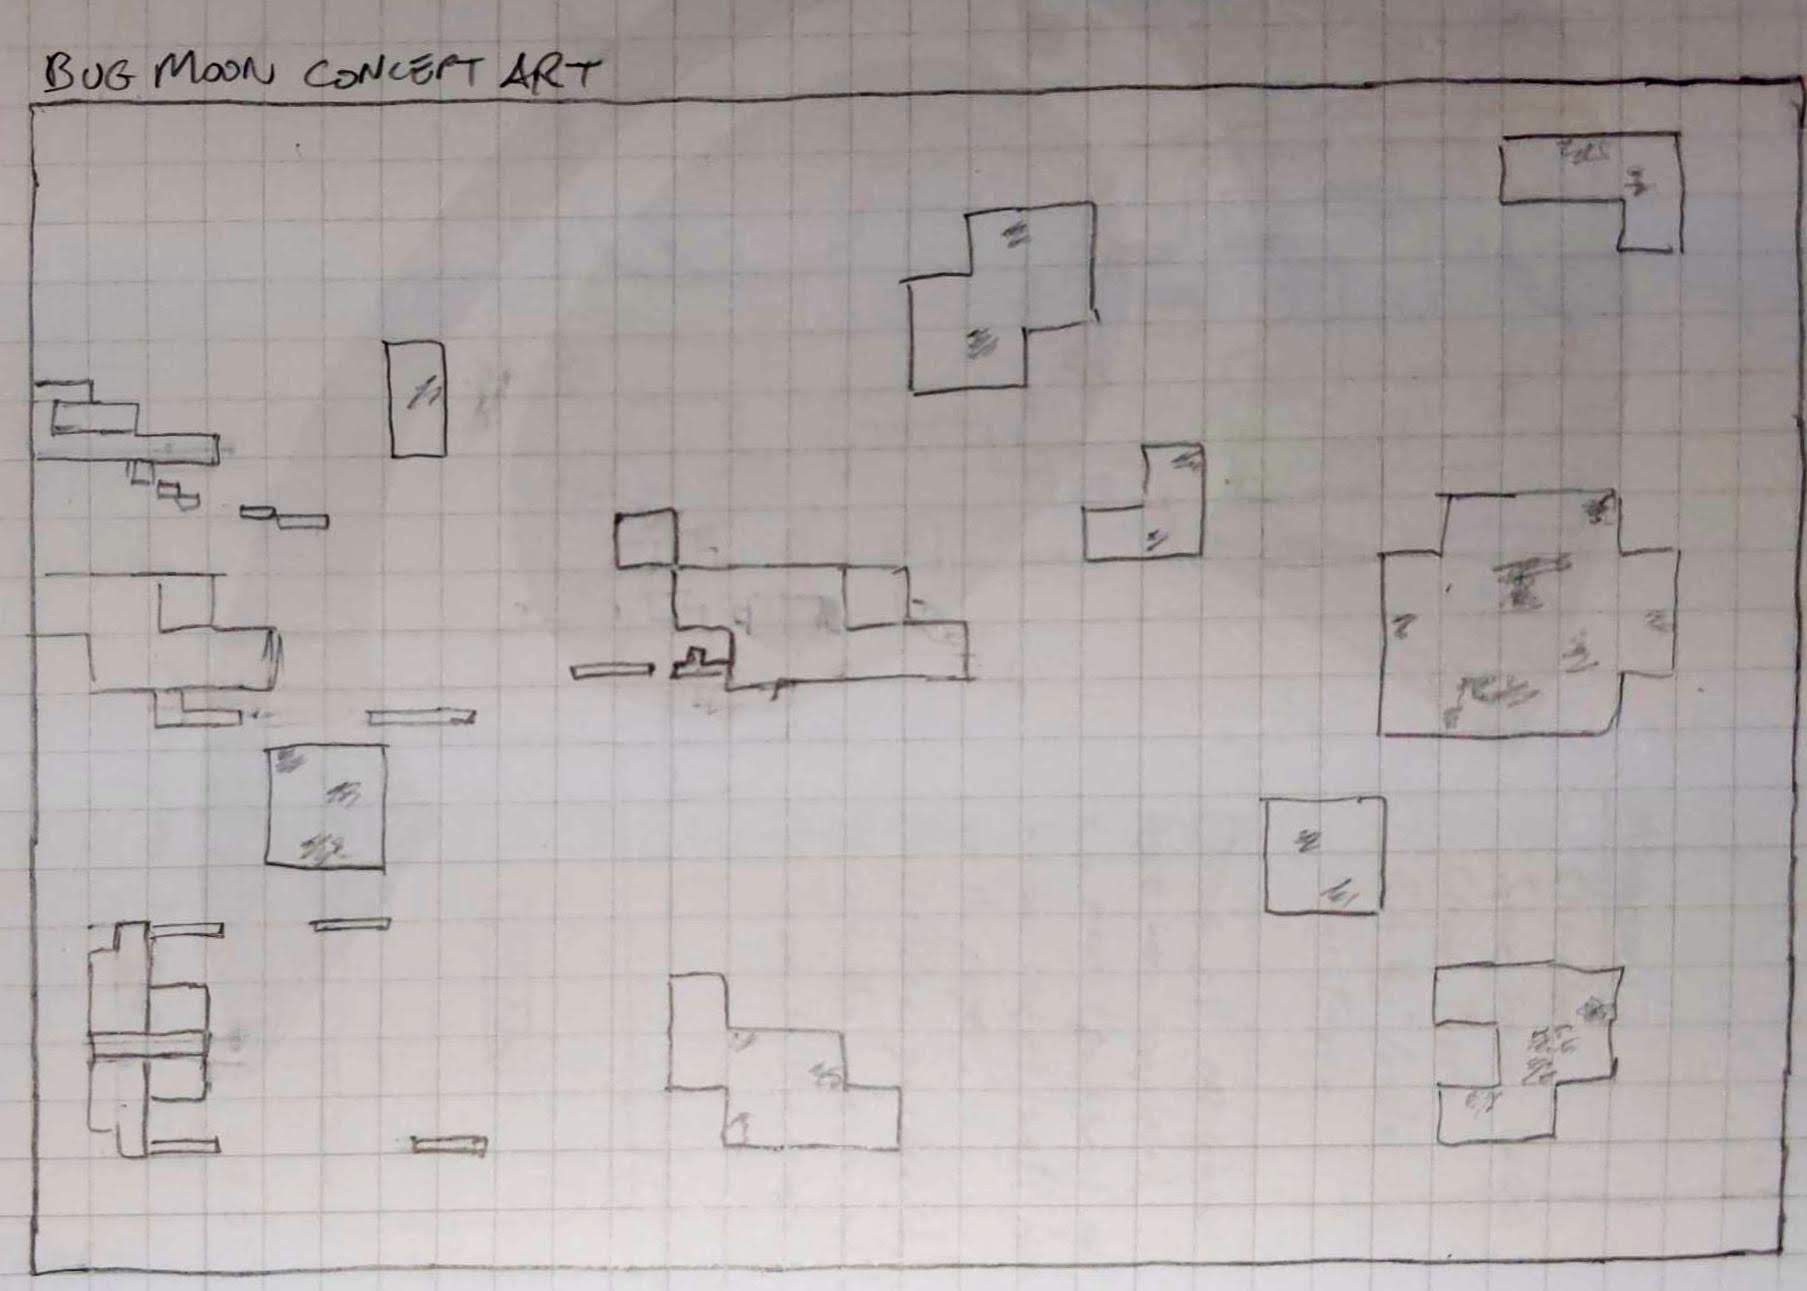 BUG MOON CONCEPT ART